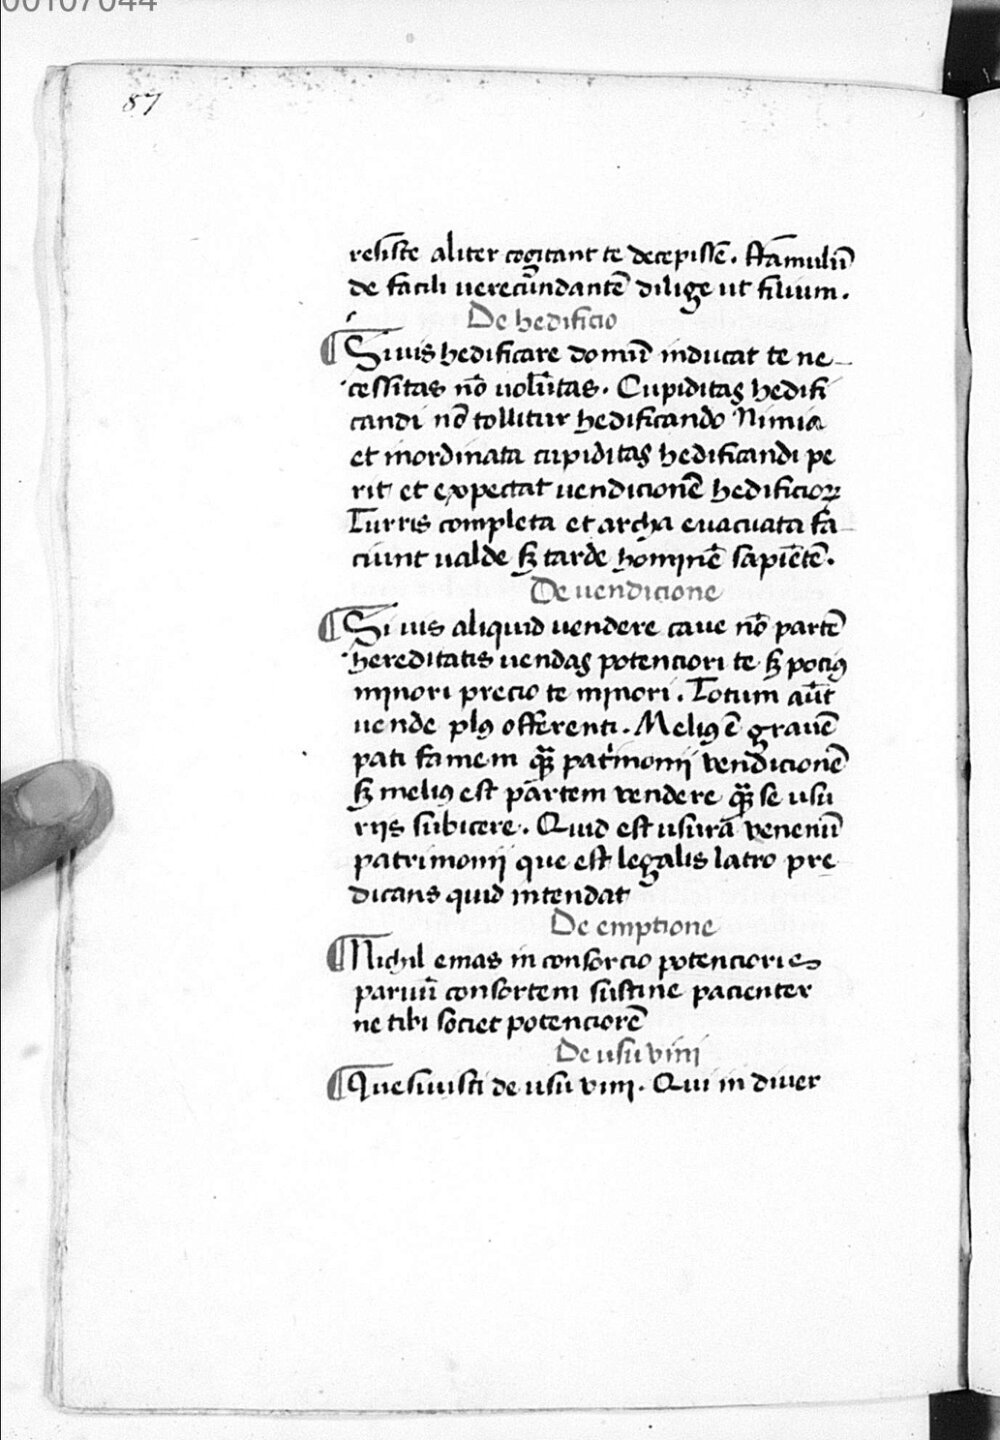 00107044
87
resiste aliter cogitant te decepissē. ffamulū
de facili uerecūndantē dilige ut filium.
De hedificio
Si uis hedificare domū inducat te ne-
cessitas nō uolūtas. Cupiditas hedifi
candi nō tollitur hedificando Nimia
et inordinata cupiditas hedificandi pe
rit et expectat uendicionē hedificioꝝ
Turris completa et archa euacuata fa-
ciunt ualde sꝫ tarde hominē sapiētē.
De uendicione
Si uis aliquid uendere caue nō partē
hereditatis uendas potenciori te sꝫ pociꝰ
minori precio te minori. Totum aūt
uende plꝰ offerenti. Meliꝰ ē grauē
pati famem qꝫ̄ patrimonij vendicionē
sꝫ meliꝰ est partem vendere qꝫ̄ se usu
rijs subicere. Quid est usura venenū
patrimonij que est legalis latro pre
dicans quid intendat
De emptione
Nichil emas in consorcio potencioris
paruū consortem sustine pacienter
ne tibi societ potenciorē
De usu vini
Quesiuisti de usu vini. Qui in diuer